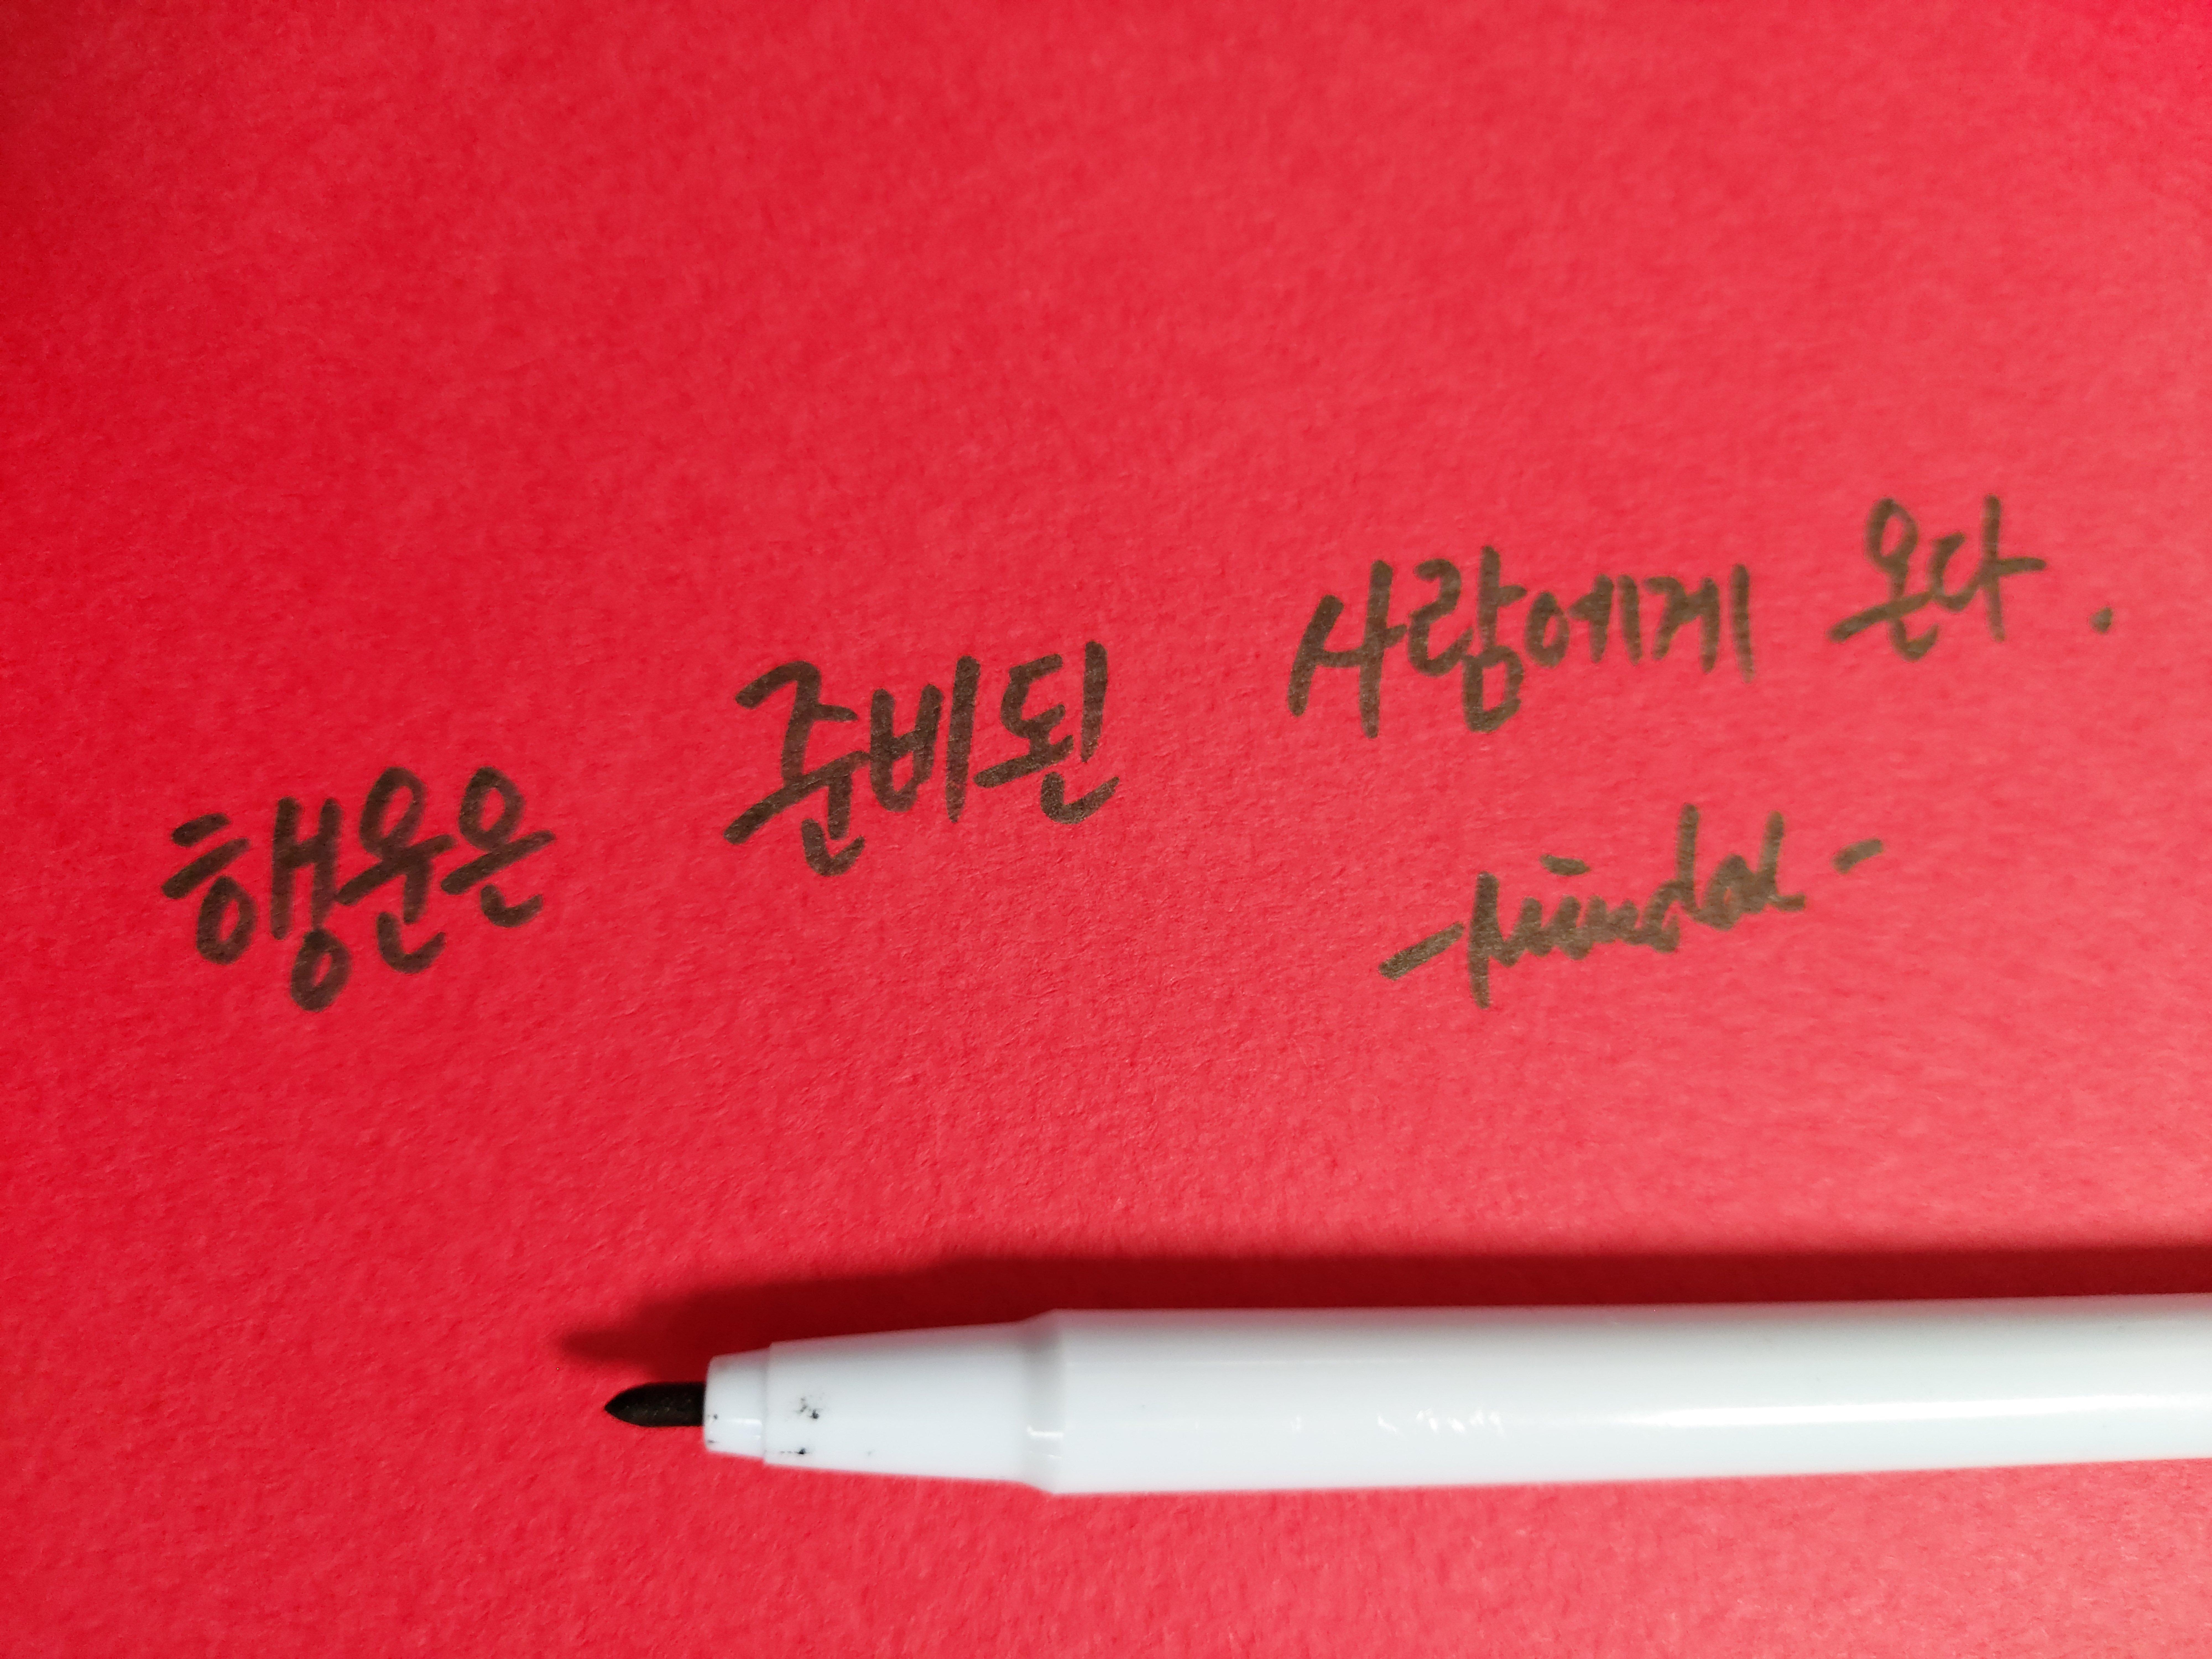 행운은 준비된 사람에게 온다.